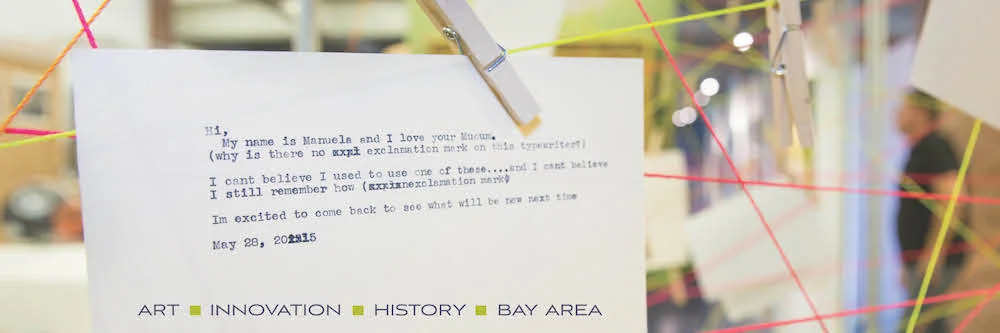 Hi,
My name is Manuela and I love your Muoum.
(why is there no exclamation mark on this typewriter!)
I cant believe I used to use one of these....and I cant believe
I still remember how exclamation mark)
Im excited to come back to see what will be new next time
May 28, 2015
ART ■ INNOVATION ■ HISTORY ■ BAY AREA